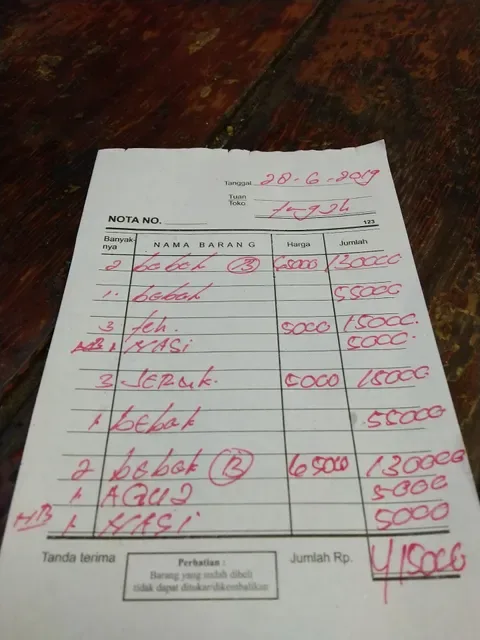 Tanggal 28-6-2019
Tuan
Toko
NOTA NO.
123
Banyak-nya NAMA BARANG Harga Jumlah
2 bebek B 65000 130000
1. bebek 55000
3 teh. 5000 15000
HB 1 NASi 5000.
3 JERuk. 5000 15000
1 bebek 55000
2 bebek B 65000 130000
1. AQUA 5000
HB 1. NASi 5000
Tanda terima Jumlah Rp. 415000
Perhatian :
Barang yang sudah dibeli
tidak dapat ditukar/dikembalikan